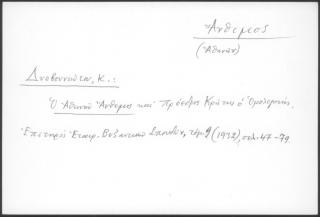 Ἄνθιμος
(Ἀθηνῶν)
Δυοβουνιώτης, Κ.:
Ὁ Ἀθηνῶν Ἄνθιμος καὶ Πρόεδρος Κρήτης ὁ Ὁμολογητής.
Ἐπετηρὶς Ἑταιρ. Βυζαντινῶν Σπουδῶν, τόμ. 9 (1932), σελ. 47-79